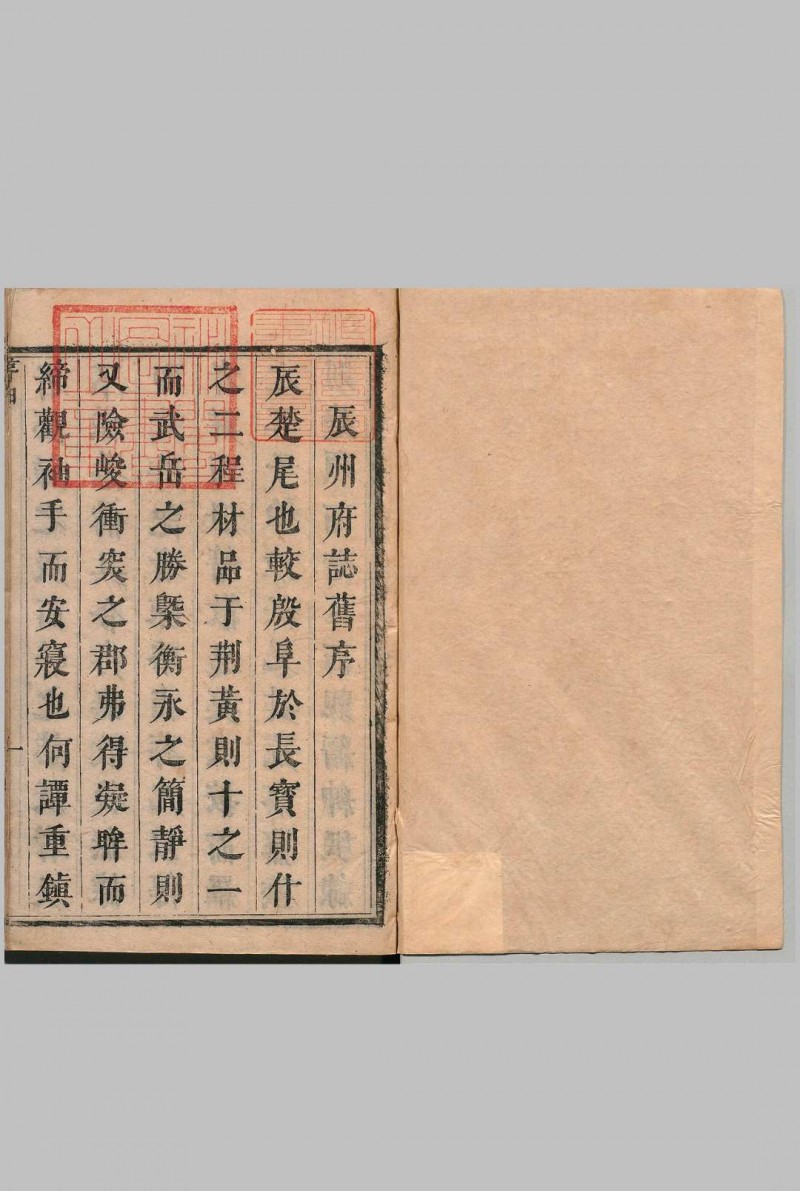 辰州府誌舊序
辰楚尾也較殷阜於長寶則什
之二程材品于荆黃則十之一
而武岳之勝槩衡永之簡靜則
又險峻衝突之郡弗得凝眸而
締觀袖手而安寢也何譚重鎮
一